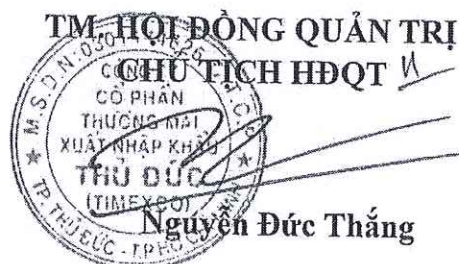 TM. HỘI ĐỒNG QUẢN TRỊ
CHỦ TỊCH HĐQT
CỔ PHẦN
THƯƠNG MẠI
XUẤT NHẬP KHẨU
THỦ ĐỨC
(TIMEXCO)
TP. THỦ ĐỨC - T.P HỒ CHÍ MINH
Nguyễn Đức Thắng